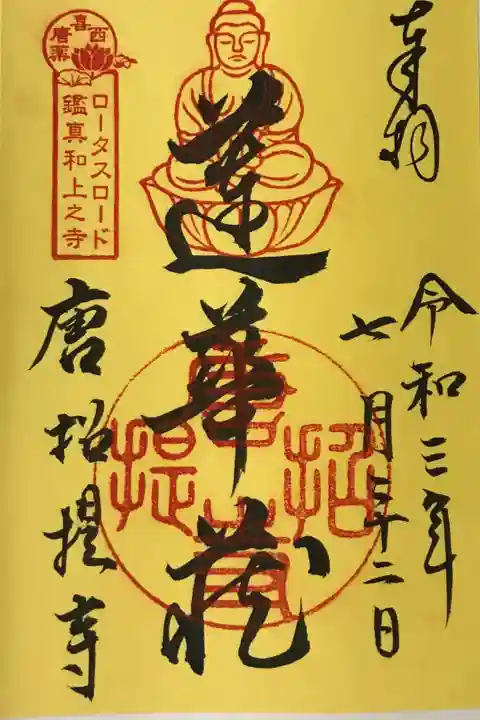 奉拝
令和三年
七月二十二日
蓮華蔵
唐招提寺
西喜唐薬
ロータスロード
鑑真和上之寺